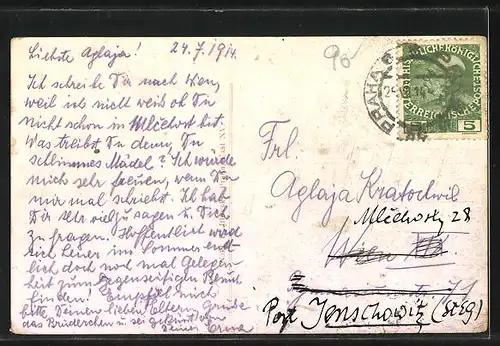 Liebste Aglaja! 24.7.1914.
Ich schreibe Dir nach Wien,
weil ich nicht weiß ob Du
nicht schon in Mlčechost bist.
Was treibst Du denn, Du
schlimmes Mädel? Ich würde
mich sehr freuen, wenn Du
mir mal schriebst. Ich hab
Dir sehr viel zu sagen u. Dich
zu fragen. Hoffentlich wird
sich heuer im Sommer endlich
doch noch mal Gelegenheit
zum gegenseitigen Besuch
finden! Empfiehl mich
bitte Deinen lieben Eltern, Grüße
das Brüderchen u. sei geküsst von
Deiner Erna
90
PRAHA
5
Frl.
Aglaja Kratochwil
28
Wien
Post Jenschowitz